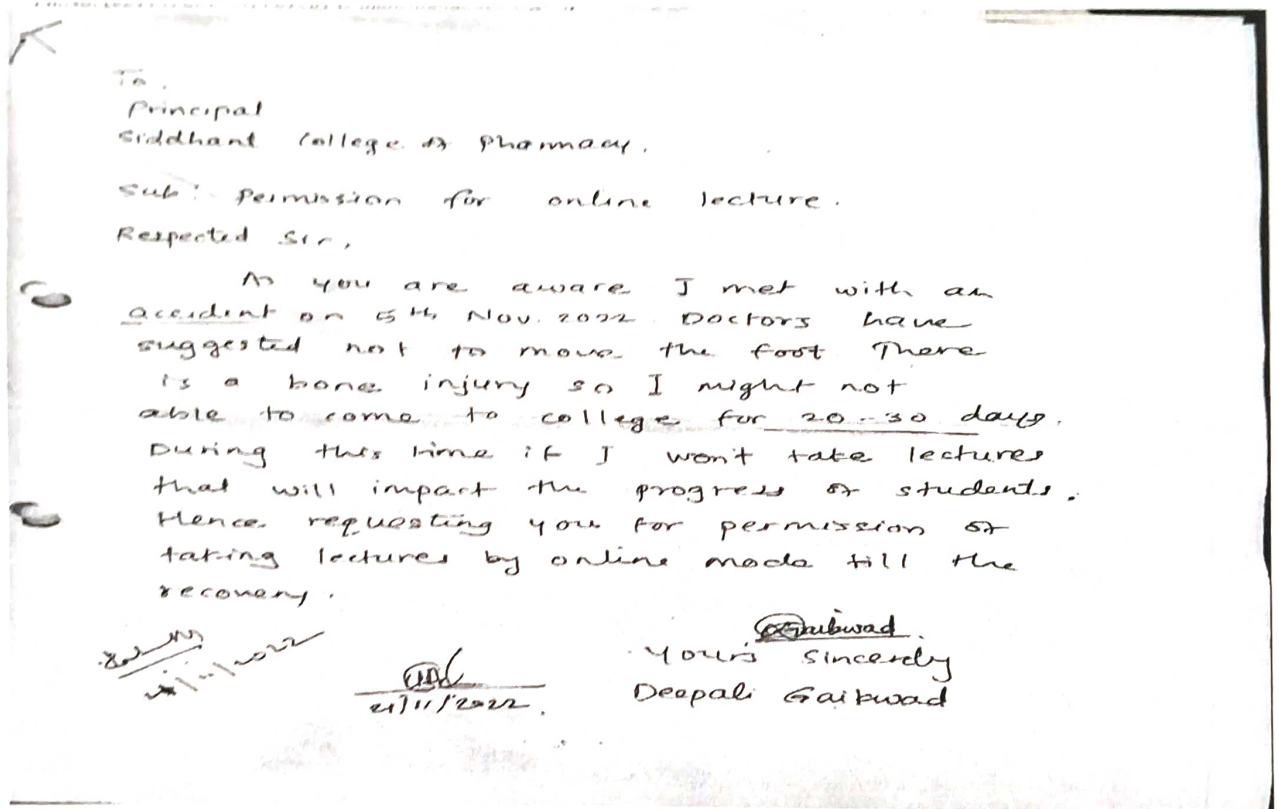 To,
Principal
Siddhant College of Pharmacy.
Sub: Permission for online lecture.
Respected Sir,
As you are aware I met with an
accident on 5th Nov. 2022 Doctors have
suggested not to move the foot There
is a bone injury so I might not
able to come to college for 20-30 days.
During this time if I won't take lectures
that will impact the progress of students.
Hence requesting you for permission of
taking lectures by online mode till the
recovery.
Gaikwad
Yours Sincerely
Deepali Gaikwad
21/11/2022.